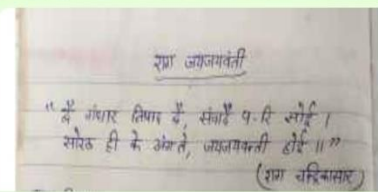 राग जयजयवंती
"द्वै गंधार निषाद द्वै, संवादै प-रि सोई ।
सोरठ ही के अंगते, जयजयवन्ती होई ॥"
(राग चन्द्रिकासार)